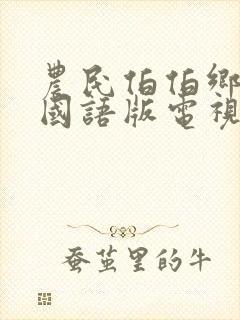 農民伯伯鄉
國語版電視
蚕茧里的牛